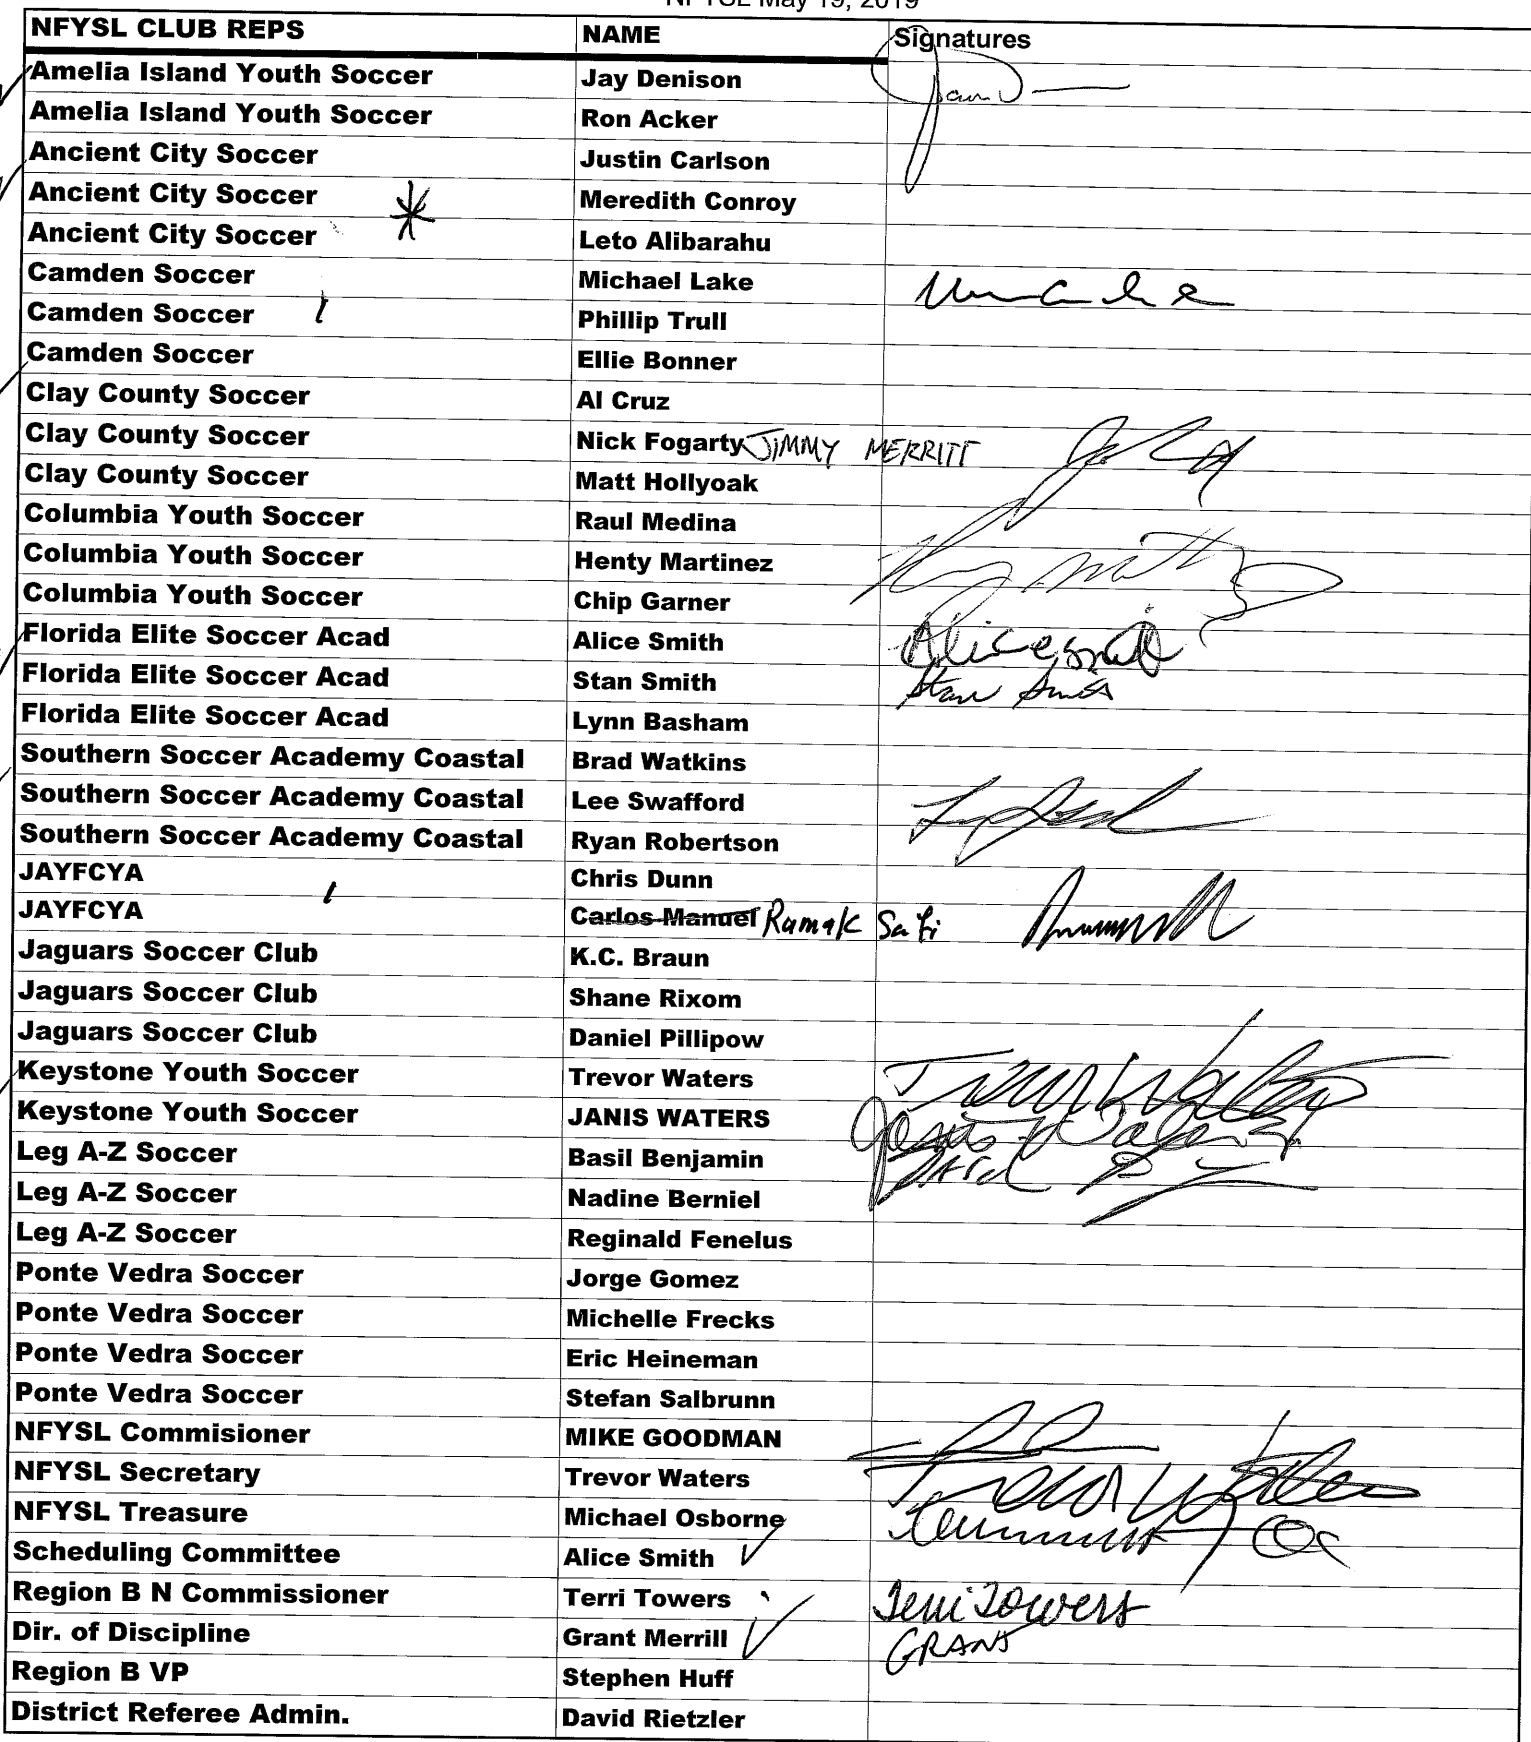 NFYSL May 19, 2019
NFYSL CLUB REPS NAME Signatures
Amelia Island Youth Soccer Jay Denison
Amelia Island Youth Soccer Ron Acker
Ancient City Soccer Justin Carlson
Ancient City Soccer Meredith Conroy
Ancient City Soccer Leto Alibarahu
Camden Soccer Michael Lake
Camden Soccer Phillip Trull
Camden Soccer Ellie Bonner
Clay County Soccer Al Cruz
Clay County Soccer Nick Fogarty JIMMY MERRITT
Clay County Soccer Matt Hollyoak
Columbia Youth Soccer Raul Medina
Columbia Youth Soccer Henty Martinez
Columbia Youth Soccer Chip Garner
Florida Elite Soccer Acad Alice Smith Alice Smith
Florida Elite Soccer Acad Stan Smith Stan Smith
Florida Elite Soccer Acad Lynn Basham
Southern Soccer Academy Coastal Brad Watkins
Southern Soccer Academy Coastal Lee Swafford
Southern Soccer Academy Coastal Ryan Robertson
JAYFCYA Chris Dunn
JAYFCYA Carlos Manuel Ramak Safi
Jaguars Soccer Club K.C. Braun
Jaguars Soccer Club Shane Rixom
Jaguars Soccer Club Daniel Pillipow
Keystone Youth Soccer Trevor Waters Trevor Waters
Keystone Youth Soccer JANIS WATERS Janis Waters
Leg A-Z Soccer Basil Benjamin
Leg A-Z Soccer Nadine Berniel
Leg A-Z Soccer Reginald Fenelus
Ponte Vedra Soccer Jorge Gomez
Ponte Vedra Soccer Michelle Frecks
Ponte Vedra Soccer Eric Heineman
Ponte Vedra Soccer Stefan Salbrunn
NFYSL Commisioner MIKE GOODMAN
NFYSL Secretary Trevor Waters Trevor Waters
NFYSL Treasure Michael Osborne
Scheduling Committee Alice Smith
Region B N Commissioner Terri Towers Terri Towers
Dir. of Discipline Grant Merrill GRANT
Region B VP Stephen Huff
District Referee Admin. David Rietzler